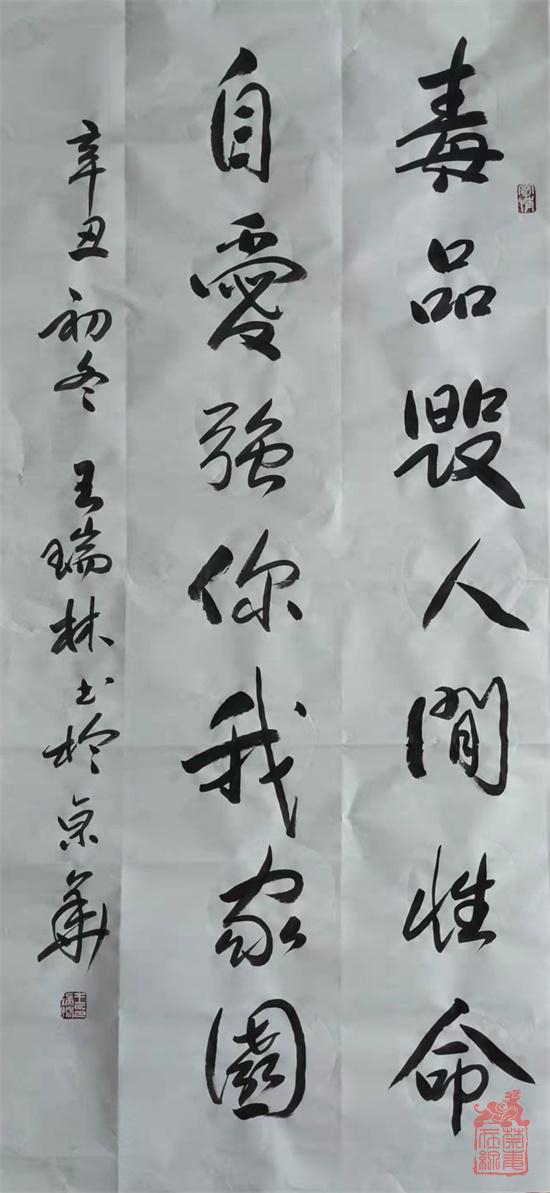 毒品毁人間性命
自愛强你我家園
辛丑初冬王瑞林书於京華